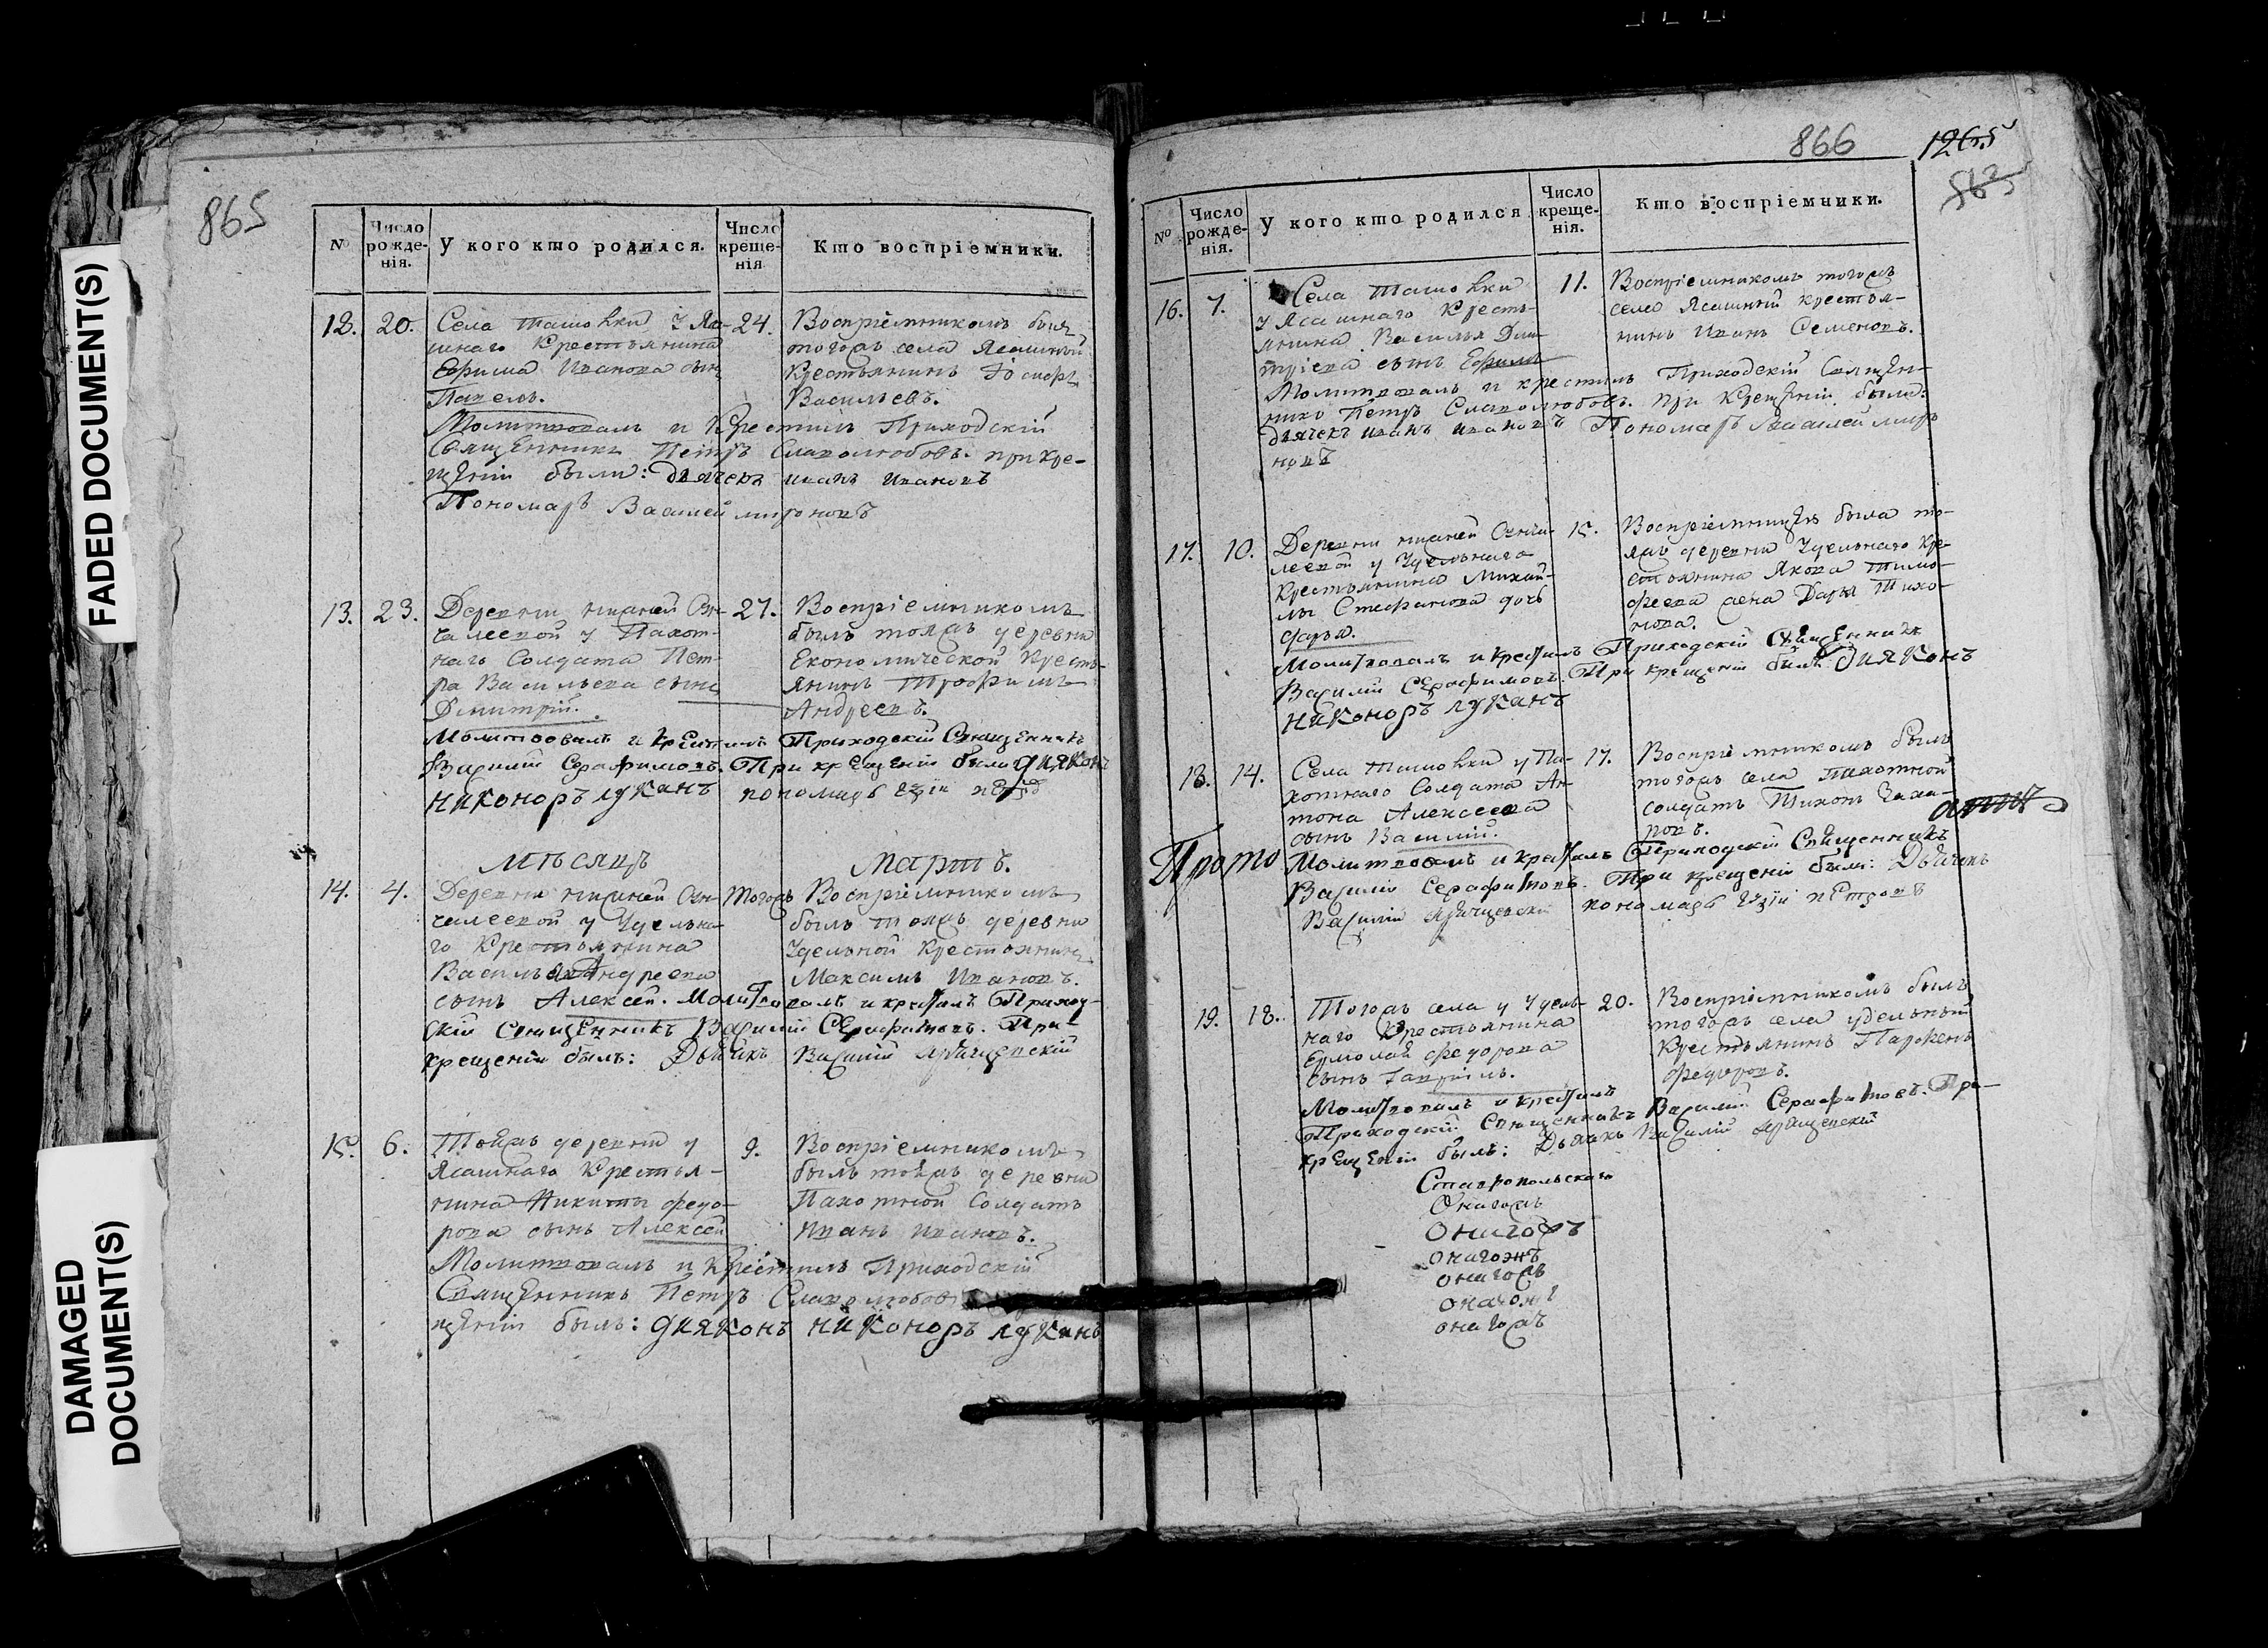 FADED DOCUMENT(S)
DAMAGED
DOCUMENT(S)
865
№
Число рожде-нія.
У кого кто родился.
Число креще-нія
Кто воспріемники.
12. 20. 24.
Села Ташовки У Яса-
шнаго Крестьянина
Ефима Иванова сынъ
Павелъ.
Воспріемникомъ былъ
тогожъ села Ясашный
Крестьянинъ
Васильевъ.
Молитвовалъ и Крестилъ Приходскій
Священникъ Петръ Славолюбовъ. при кре-
щеніи были: дьячекъ иванъ ивановъ
Пономарь Василей мироновъ
13. 23. 27.
Деревни нижней
у Пахот-
наго Солдата Пет-
ра Васильева сынъ
Димитрій.
Воспріемникомъ
былъ тояжъ деревни
Економической Кресть-
янинъ Трофимъ
Андреевъ.
Молитвовалъ и крестилъ Приходскій Священникъ
Василій Серафимовъ. При крещеніи были диаконъ
никоноръ луканъ пономарь
мѣсяцъ мартъ.
14. 4. Тогожъ
Деревни нижней
у Удельна-
го Крестьянина
Василья Андреева
сынъ Алексей. Молитвовалъ и крестилъ Приход-
скій Священникъ Василій Серафимовъ. При-
крещеніи былъ: Дьячикъ Василій
Воспріемникомъ
былъ тояжъ деревни
Удельной Крестьянинъ
Максимъ Ивановъ.
15. 6. 9.
Тояжъ деревни у
Ясашнаго Крестья-
нина Никиты федо-
рова сынъ Алексей
Воспріемникомъ
былъ тояжъ деревни
Пахотной Солдатъ
Иванъ Ивановъ.
Молитвовалъ и Крестилъ Приходскій
Священникъ Петръ Славолюбовъ
щеніи былъ: диаконъ никоноръ луканъ
866
1265
865
№
Число рожде-нія.
У кого кто родился
Число креще-нія.
Кто воспріемники.
16. 7. 11.
Села Ташовки
у Ясашнаго Кресть-
янина Василья Дми-
тріева сынъ Ефимъ
Воспріемникомъ тогожъ
села Ясашный крестья-
нинъ Иванъ Семеновъ.
Молитвовалъ и крестилъ Приходскій Священ-
никъ Петръ Славолюбовъ. при Крещеніи были:
дьячекъ иванъ ивановъ Пономарь Василей миро-
новъ
17. 10. 15.
Деревни нижней
у Удельнаго
Крестьянина Михай-
лы Стефанова дочь
дарья.
Воспріемницею была то-
яжъ деревни Удельнаго Кре-
стьянина Якова Тимо-
феева жена Дарья Тихо-
нова.
Молитвовалъ и крестилъ Приходскій Священникъ
Василій Серафимовъ. При крещеніи былъ: диаконъ
никоноръ луканъ
18. 14. 17.
Села Ташовки у Па-
хотнаго Солдата Ан-
тона Алексеева
сынъ Василій.
Воспріемникомъ былъ
тогожъ села пахотной
солдатъ Тихонъ Заха-
ровъ.
Прото
Молитвовалъ и крестилъ Приходскій Священникъ
Василій Серафимовъ. При крещеніи были: Дьячикъ
Василій пономарь петровъ
19. 18. 20.
Тогожъ села у Удель-
наго Крестьянина
Ермолая федорова
сынъ Гавріилъ.
Воспріемникомъ былъ
тогожъ села удельный
Крестьянинъ Парфенъ
федоровъ.
Молитвовалъ и крестилъ
Приходскій Священникъ Василій Серафимовъ. При-
крещеніи былъ: Дьячикъ Василій
Ставропольскаго